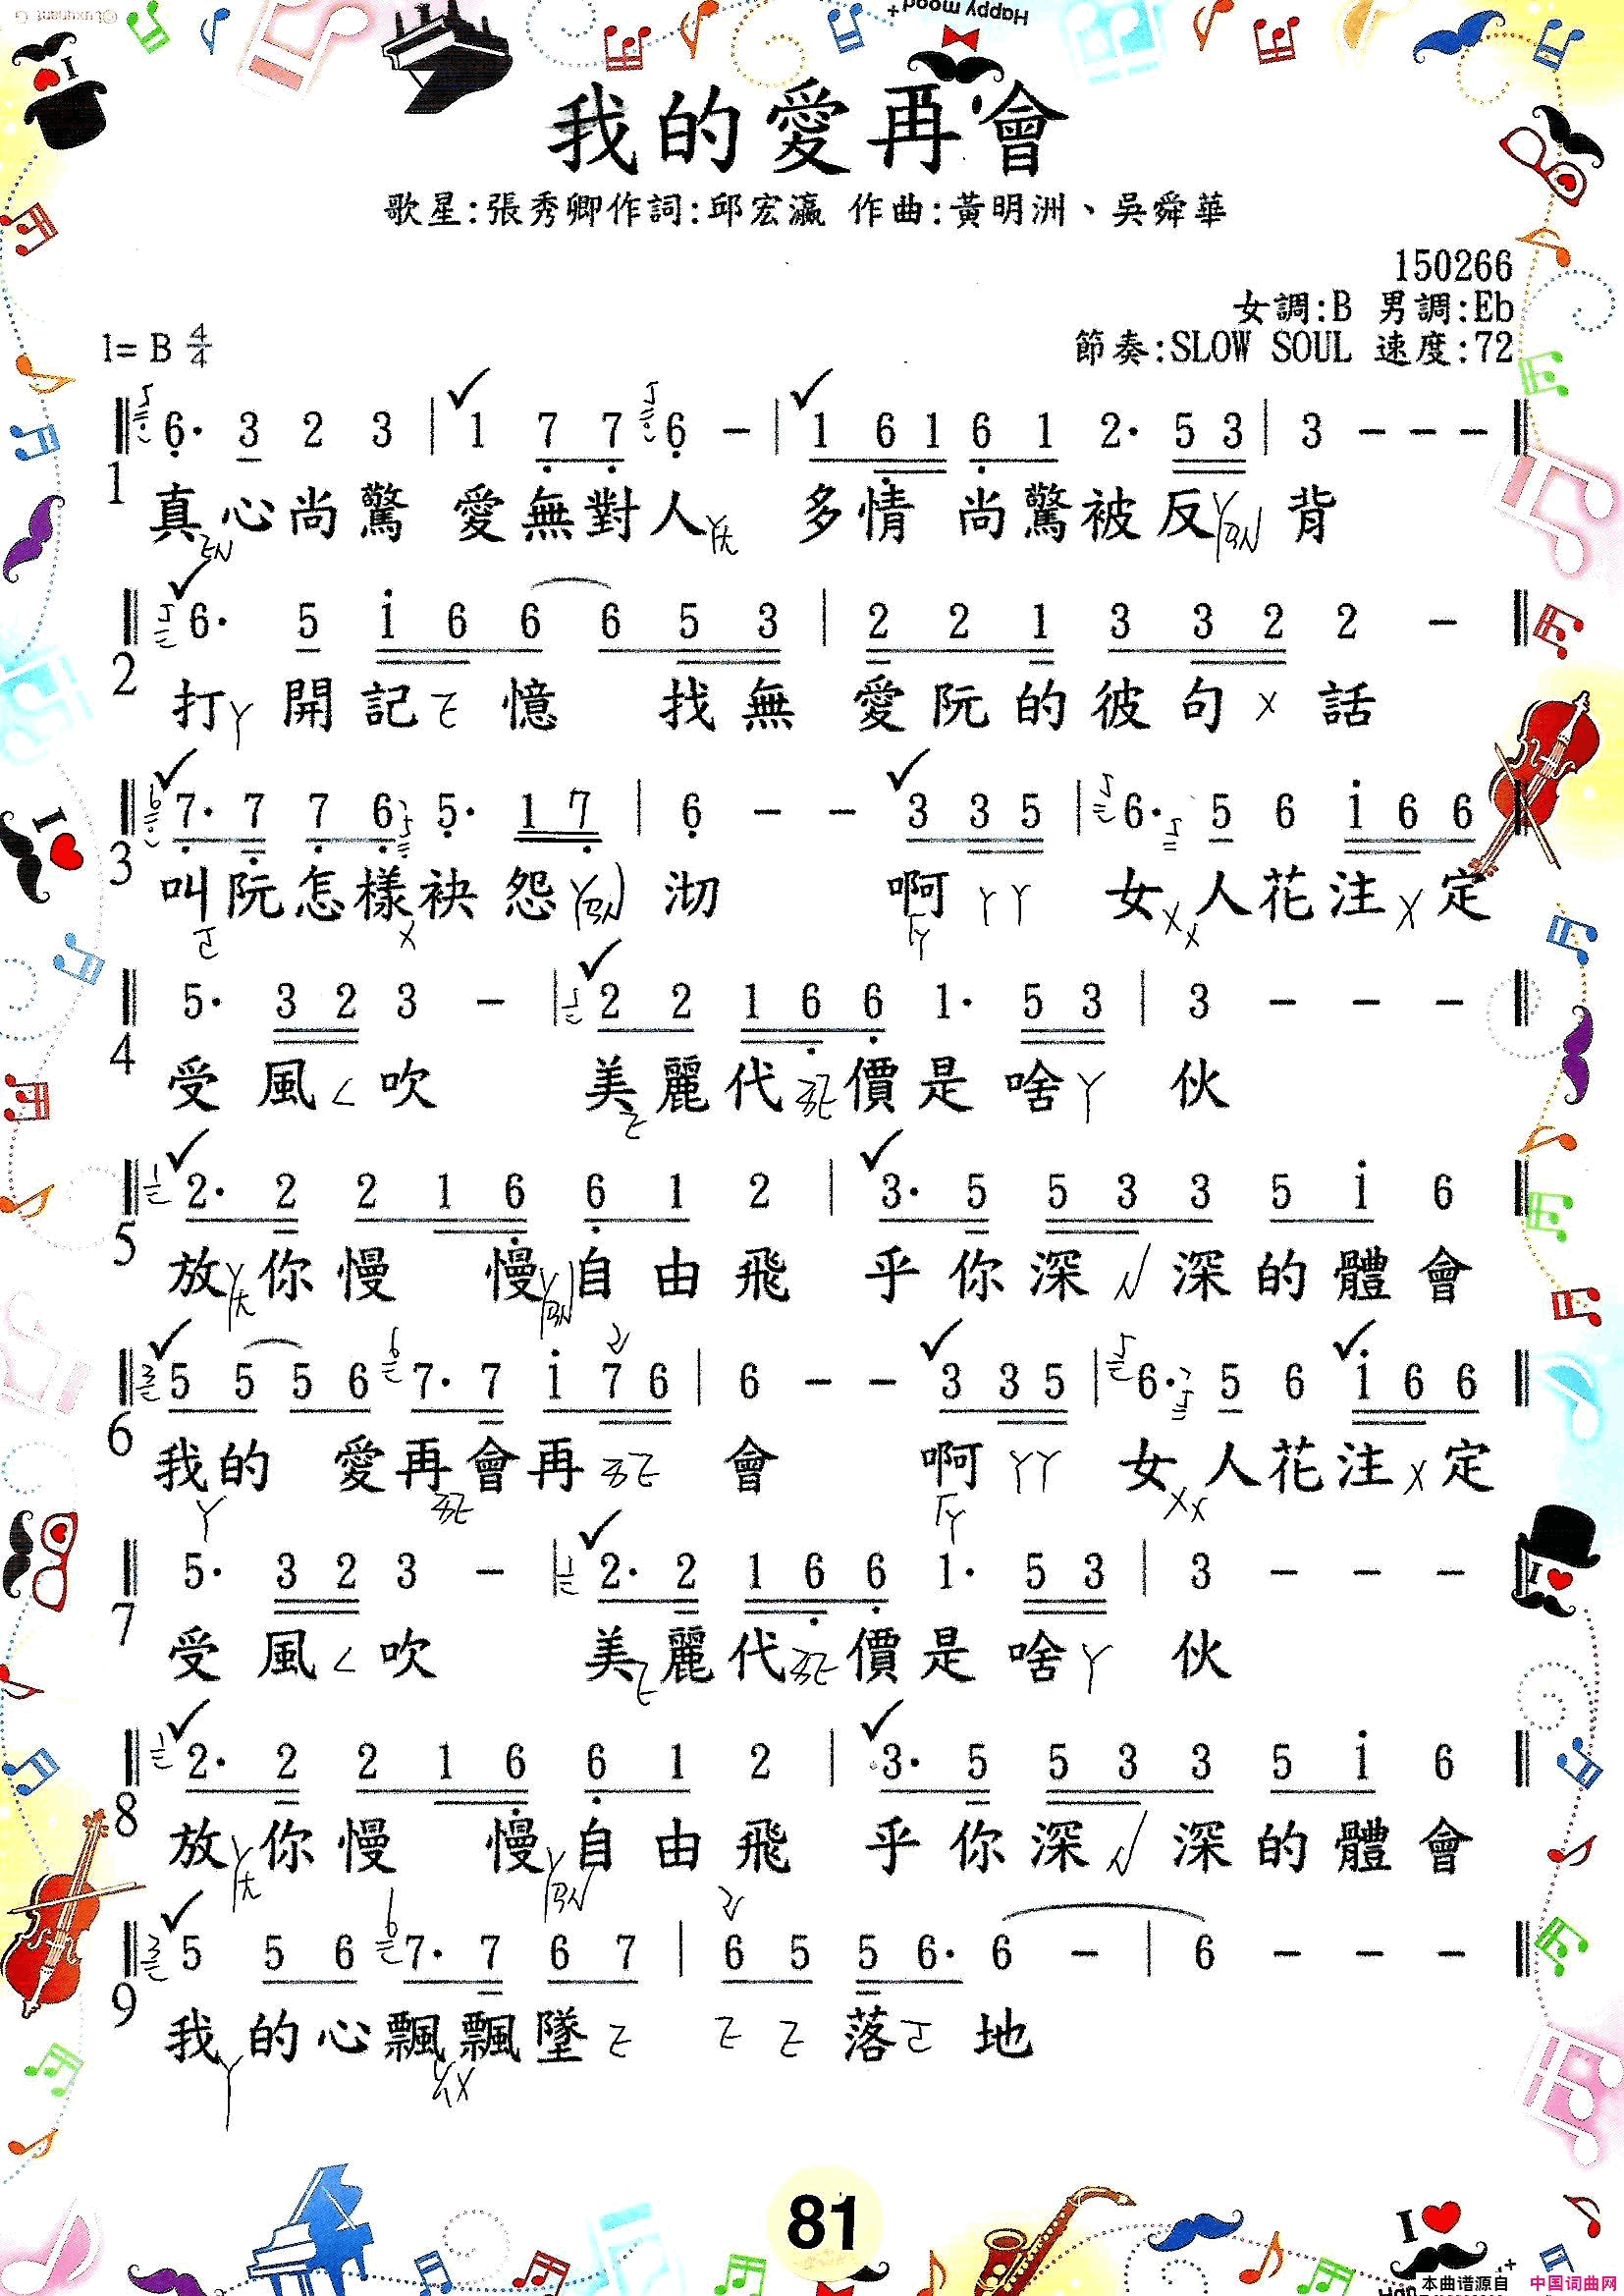 Happy mood
我的愛再會
歌星:張秀卿作詞:邱宏瀛 作曲:黃明洲、吳舜華
150266
女調:B 男調:Eb
1= B 4/4
節奏:SLOW SOUL 速度:72
6· 3 2 3 | 1 7 7 6 - | 1 6 1 6 1 2· 5 3 | 3 - - -
1
真心尚驚 愛無對人 多情 尚驚被反 背
6· 5 i 6 6 6 5 3 | 2 2 1 3 3 2 2 -
2
打 開記 憶 找無 愛阮的彼句 話
7· 7 7 6 5· 1 7 | 6 - - 3 3 5 | 6· 5 6 i 6 6
3
叫阮怎樣袂怨 沏 啊 女人花注 定
5· 3 2 3 - | 2 2 1 6 6 1· 5 3 | 3 - - -
4
受風 吹 美麗代 價是啥 伙
2· 2 2 1 6 6 1 2 | 3· 5 5 3 3 5 i 6
5
放 你慢 慢 自由飛 乎你深 深的體會
5 5 5 6 7· 7 i 7 6 | 6 - - 3 3 5 | 6· 5 6 i 6 6
6
我的 愛再會再 會 啊 女人花注 定
5· 3 2 3 - | 2· 2 1 6 6 1· 5 3 | 3 - - -
7
受風 吹 美麗代 價是啥 伙
2· 2 2 1 6 6 1 2 | 3· 5 5 3 3 5 i 6
8
放 你慢 慢 自由飛 乎你深 深的體會
5 5 6 7· 7 6 7 | 6 5 5 6· 6 - | 6 - - -
9
我的心飄飄墜 落 地
81
I
本曲谱源自 中国词曲网